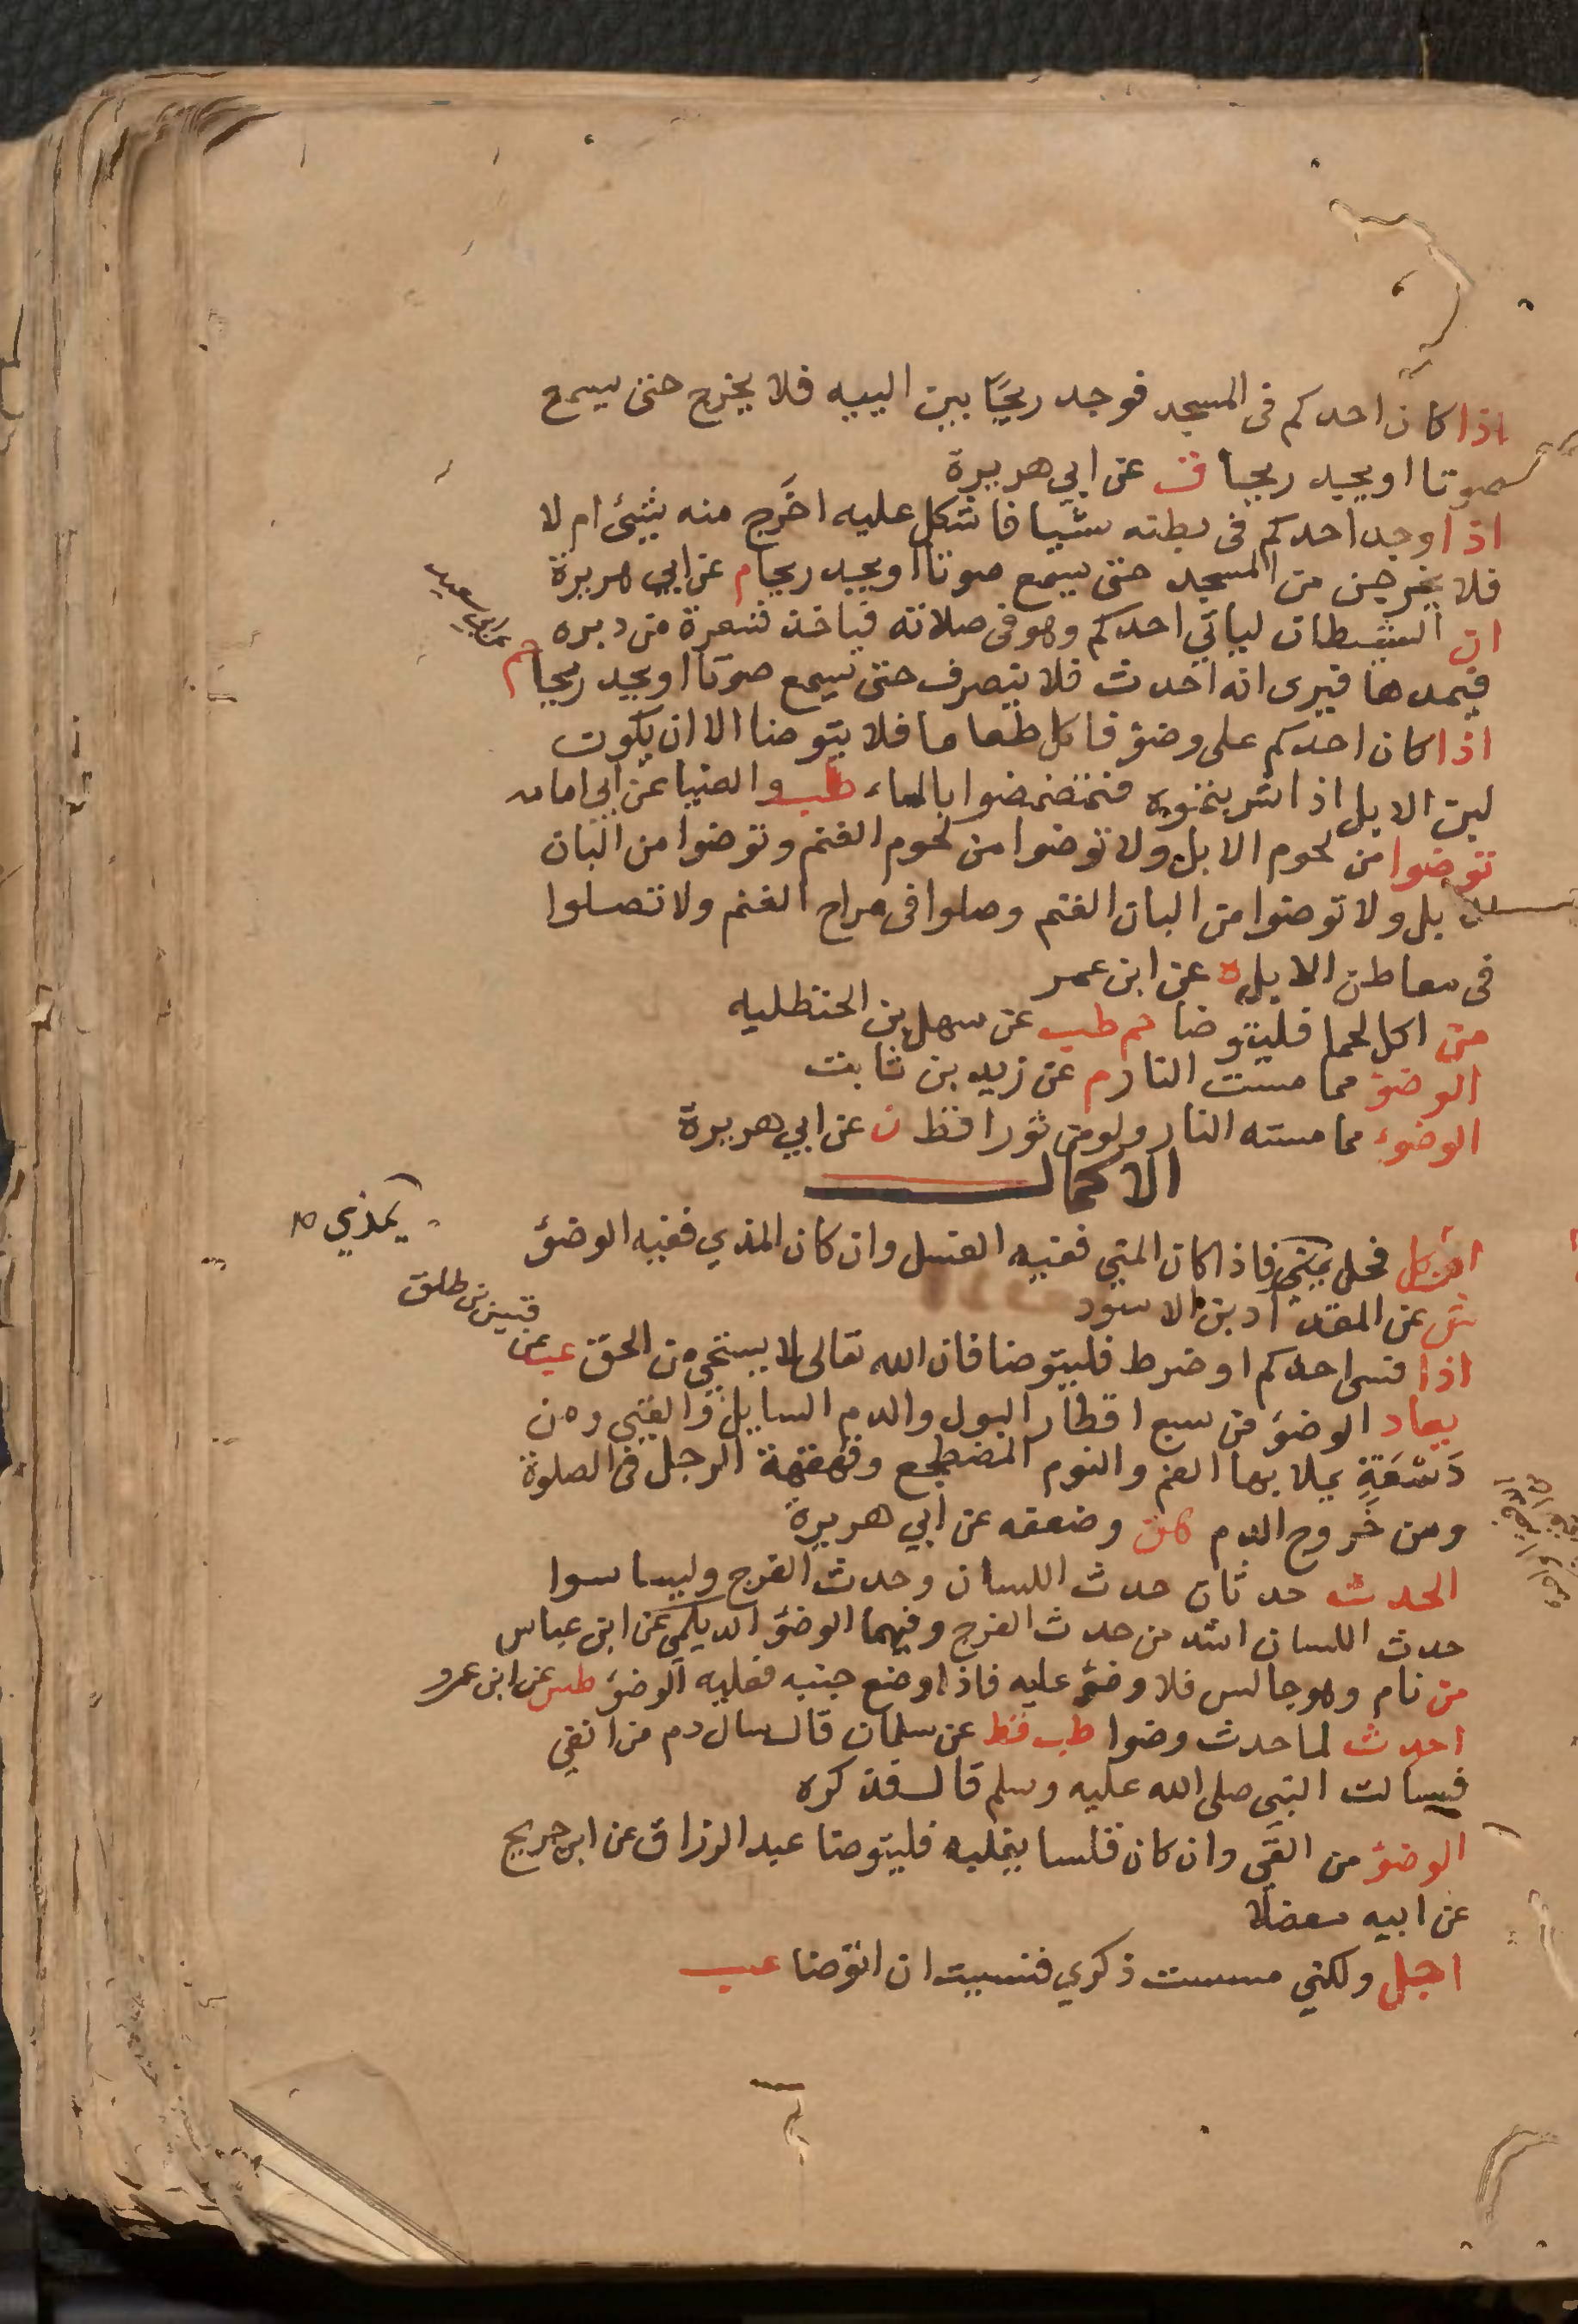 اذا كان احدكم فى المسجد فوجد ريحًا بين اليیه فلا يخرج حتى يسمع
صوتا او يجد ريحا ت عن ابي هريرة
اذا وجد احدكم فى بطنه شيا فاشكل عليه اخَرج منه شئ ام لا
فلا يخرجن من المسجد حتى يسمع صوتا او يجد ريحا م عن ابي هريرة
ان الشيطان لياتي احدكم وهو فى صلاته فياخذ شعرة من دبره
فيمدها فيرى انه احدث فلا ينصرف حتى يسمع صوتا او يجد ريحا حم
عن ابي سعيد
اذا كان احدكم على وضؤ فاكل طعاما فلا يتوضا الا ان يكون
لبن الابل اذا شربتموه فتمضمضوا بالماء طب والضيا عن ابي امامه
توضوا من لحوم الابل ولا توضوا من لحوم الغنم وتوضوا من البان
الابل ولا توضوا من البان الغنم وصلوا فى مراح الغنم ولا تصلوا
فى معاطن الابل ه عن ابن عمر
من اكل لحما فليتوضا حم طب عن سهل بن الحنظليه
الوضؤ مما مست النار م عن زيد بن ثابت
الوضوء مما مسته النار ولو من ثور اقط ن عن ابي هريرة
الاكمال
كل فحل يمني فاذا كان المني ففيه الغسل وان كان المذي ففيه الوضؤ
يمذي
ش عن المقداد بن الاسود
اذا فسى احدكم او ضرط فليتوضا فان الله تعالى لا يستحى من الحق عب عن
قيس بن طلق
يعاد الوضؤ من سبع اقطار البول والدم السايل والقيي ومن
دَسْعَةٍ يملا بها الفم والنوم المضطجع وقهقهة الرجل فى الصلوة
ومن خروج الدم ق وضعفه عن ابي هريرة
الحدث حدثان حدث اللسان وحدث الفرج وليسا سوا
حدث اللسان اشد من حدث الفرج وفيهما الوضؤ الديلمي عن ابن عباس
من نام وهو جالس فلا وضؤ عليه فاذا وضع جنبه فعليه الوضؤ طس عن ابن عمرو
احدث لما حدث وضوا طب قط عن سلمان قال سال دم من انفي
فسالت النبي صلى الله عليه وسلم قال فذكره
الوضؤ من القَي وان كان قلسا يغلبه فليتوضا عبد الرزاق عن ابن جريج
عن ابيه معضلا
اجل ولكني مسست ذكري فنسيت ان اتوضا عب